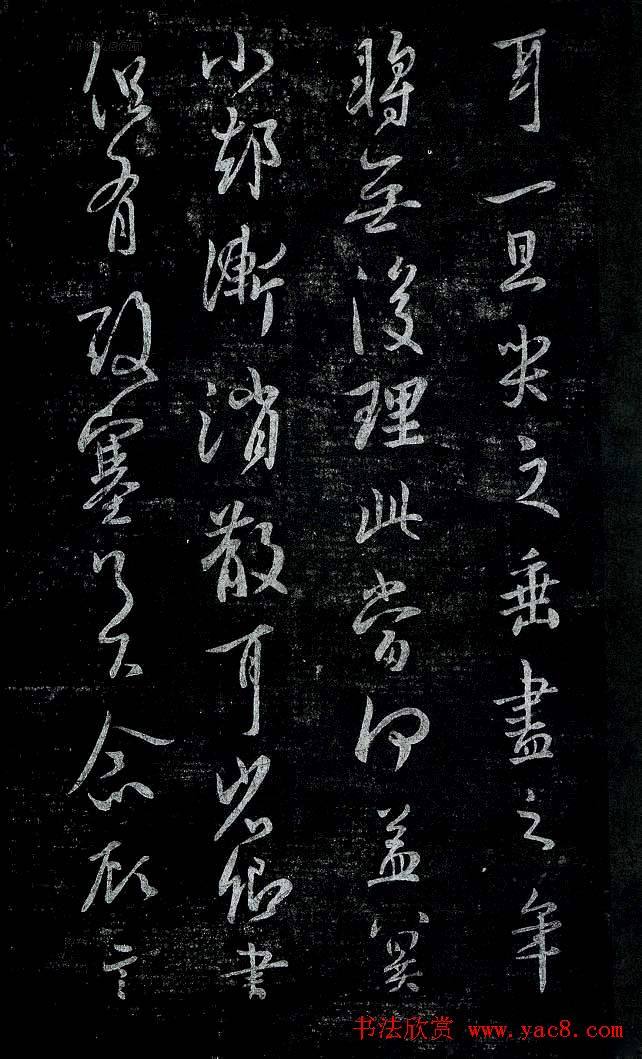 耳一旦哭之垂盡之年
將無復理此當何益冀
小却漸消散耳省卿書
但有酸塞足下念顧言
书法欣赏 www.yac8.com